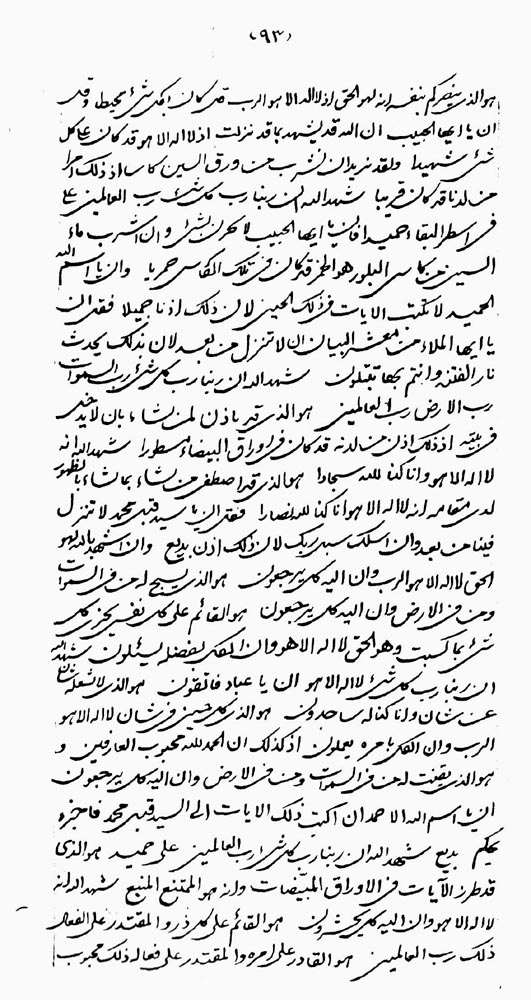 (۹۳)
هو الذی ینصرکم بنفسه انه لهو الحق اذ لا اله الا هو الرب قد کان بکل شیء محیطا وقل
ان یا ایها الحبیب ان الله قد یشهد بما قد نزلت اذ لا اله الا هو قد کان علی کل
شیء شهیدا ولقد نریدان نشرب من ورق السین کاسا اذ ذلک امرا
من لدنا قد کان قریبا شهد الله ان ربنا رب کل شیء رب العالمین
فی اسطر البقاء حمیدا یا ایها الحبیب لا تحزن بشیء وان اشرب ماء
السین من کاس البلور هو الحق قد کان فی تلک الکاس حمریا وان یا اسم الله
الحمید لا تکتب الایات فی ذلک الحین لان ذلک اذنا جمیلا فقل ان
یا ایها الملاء من معشر البیان ان لا تنزل من بعد لان بذلک یحدث
نار الفتنه وانتم بها تبتلون شهد الله ان ربنا رب کل شیء رب السموات
رب الارض رب العالمین هو الذی قد یاذن لمن شاء بان لا یدخل
فی بیته اذ ذلک اذن من لدنه قد کان فی اوراق البیضاء مسطورا شهد الله انه
لا اله الا هو وانا کنا لله سجادا هو الذی قد اصطفی من شاء بما شاء بالظهور
لدی مقامه انه لا اله الا هو انا کنا لله نصارا فقل ان یا سید قبل محمد لا تنزل
فینا من بعد وان اسلک سبل ربک لان ذلک اذن بدیع وان اشهد بالله لهو
الحق لا اله الا هو الرب وان الیه کل یرجعون هو الذی یسبح له من فی السموات
ومن فی الارض وان الیه کل یرجعون هو القائم علی کل نفس یجزی کل
شیء بما کسبت وهو الحق لا اله الا هو وان الکل بفضله یسئلون شهد الله
ان ربنا رب کل شیء لا اله الا هو ان یا عباد فاتقون هو الذی لا یشغله شان
عن شان وانا کنا له ساجدون هو الذی کل حین فی شان لا اله الا هو
الرب وان الکل بامره یعملون اذ کذلک ان الحمد لله محبوب العارفین و
هو الذی یقنت له من فی السموات ومن فی الارض وان الیه کل یرجعون
ان یا اسم الله الاحمد ان اکتب ذلک الایات الی السید قبل محمد
بدیع شهد الله ان ربنا رب کل شیء رب العالمین علی حمید هو الذی
قد طرز الآیات فی الاوراق المبیضات وانه هو الممتنع المنیع شهد الله انه
لا اله الا هو وان الیه کل یحشرون هو القائم علی کل ذر و المقتدر علی الفعال
ذلک رب العالمین هو القادر علی امره والمقتدر علی فعاله ذلک محبوب